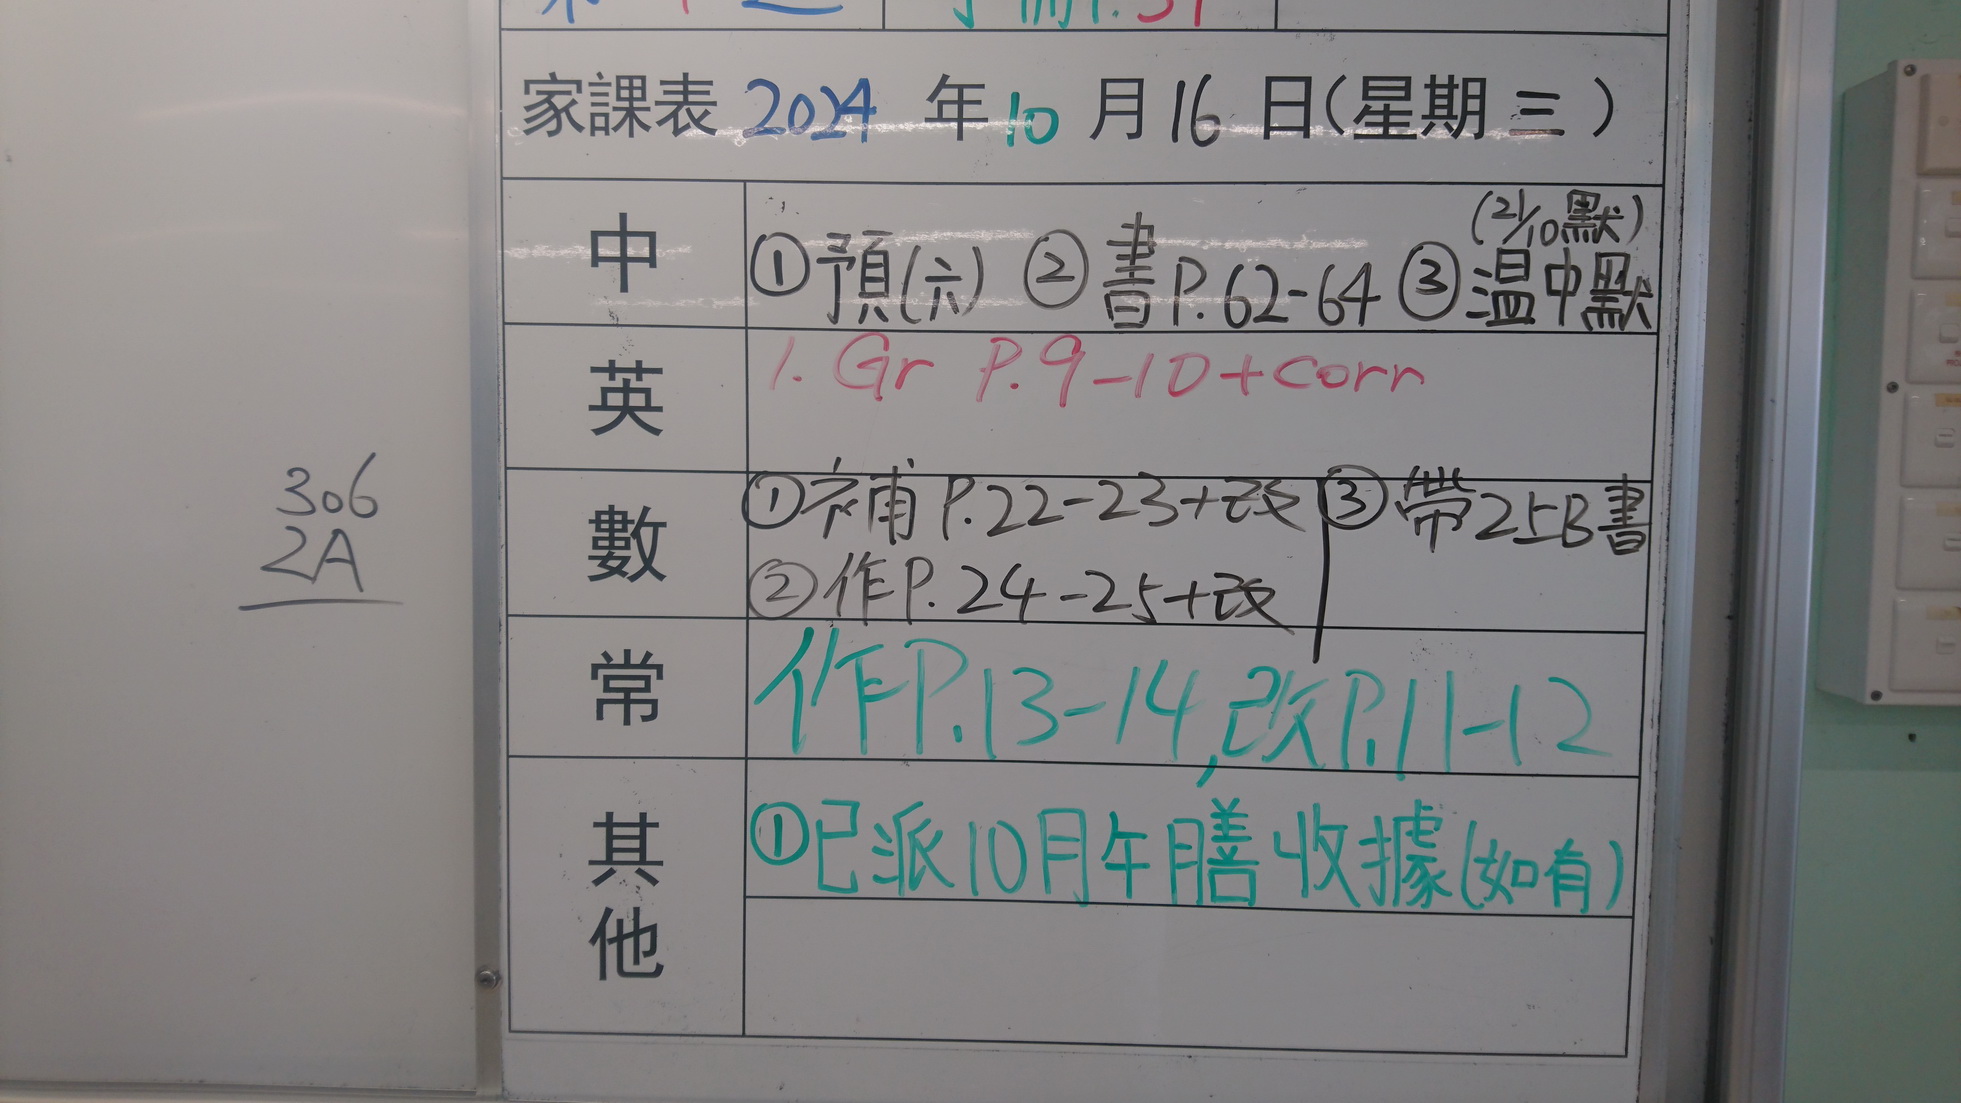 手冊P.31
家課表 2024 年 10 月 16 日(星期三)
中
(21/10默)
①預(六) ②書P.62-64 ③溫中默
英
1. Gr P.9-10+corr
數
①補P.22-23+改 ③帶2上B書
②作P.24-25+改
常
作P.13-14,改P.11-12
其他
①已派10月午膳收據(如有)
306
2A